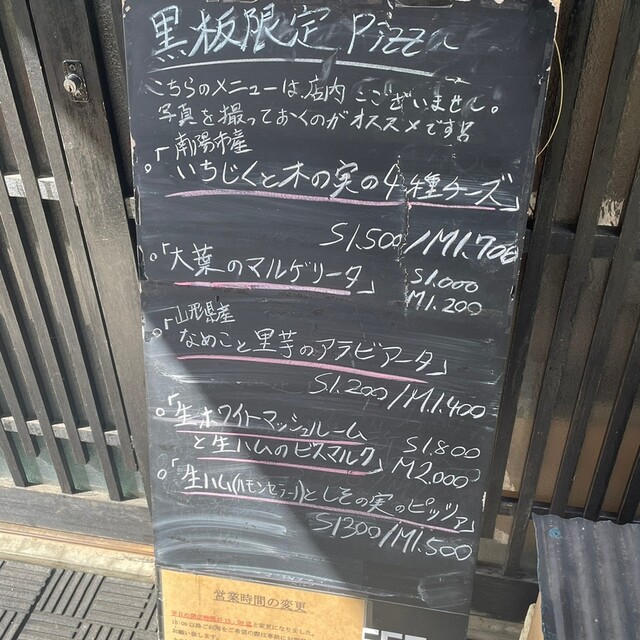 黒板限定 Pizza
こちらのメニューは店内にございません。
写真を撮っておくのがオススメです
南陽市産
「いちじくと木の実の4種チーズ」
S1.500/M1.700
「大葉のマルゲリータ」
S1.000
M1.200
山形県産
「なめこと里芋のアラビアータ」
S1.200/M1.400
「生ホワイトマッシュルーム
と生ハムのビスマルク」
S1.800
M2.000
「生ハム(ハモンセラーノ)としその実のピッツァ」
S1300/M1.500
営業時間の変更